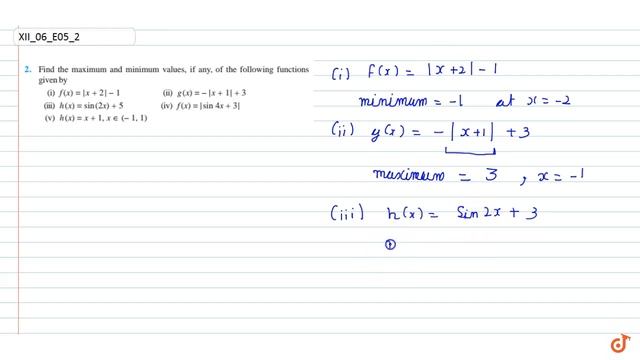 XII_06_E05_2
2. Find the maximum and minimum values, if any, of the following functions
given by
(i) f(x) = |x + 2| – 1 (ii) g(x) = – |x + 1| + 3
(iii) h(x) = sin(2x) + 5 (iv) f(x) = |sin 4x + 3|
(v) h(x) = x + 1, x ∈ (– 1, 1)
(i) f(x) = |x+2| - 1
minimum = -1 at x = -2
(ii) y(x) = - |x+1| + 3
maximum = 3 , x = -1
(iii) h(x) = sin 2x + 3